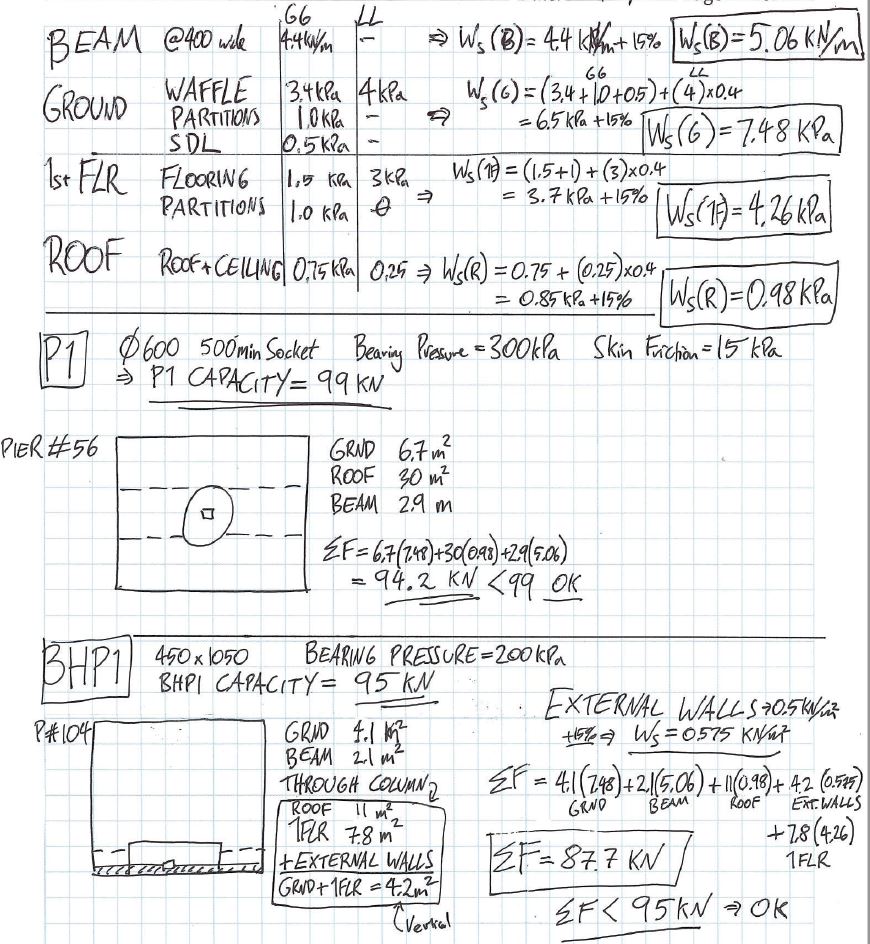 G6 LL
BEAM @400 wide 4.4kN/m - ⇒ Ws(B) = 4.4 kN/m + 15% Ws(B) = 5.06 KN/m
GROUND WAFFLE 3.4kPa 4kPa ⇒ Ws(G) = (3.4 + 1.0 + 0.5) + (4)x0.4
G6 LL
PARTITIONS 1.0kPa - = 6.5 kPa + 15% Ws(G) = 7.48 KPa
SDL 0.5kPa -
1st FLR FLOORING 1.5 KPa 3KPa ⇒ Ws(1F) = (1.5+1) + (3)x0.4
PARTITIONS 1.0 kPa = 3.7 kPa + 15% Ws(1F) = 4.26 kPa
ROOF ROOF + CEILING 0.75 kPa 0.25 ⇒ Ws(R) = 0.75 + (0.25)x0.4
= 0.85 kPa + 15% Ws(R) = 0.98 kPa
P1 Ø600 500min Socket Bearing Pressure = 300kPa Skin Friction = 15 kPa
⇒ P1 CAPACITY = 99 KN
PIER #56
GRND 6.7 m²
ROOF 30 m²
BEAM 2.9 m
ΣF = 6.7(7.48)+30(0.98)+2.9(5.06)
= 94.2 KN < 99 OK
BHP1 450 x 1050 BEARING PRESSURE = 200kPa
BHP1 CAPACITY = 95 KN
P#104
GRND 4.1 m²
BEAM 2.1 m²
THROUGH COLUMN
ROOF 11 m²
1FLR 7.8 m²
+ EXTERNAL WALLS
GRND + 1FLR = 4.2m²
Vertical
EXTERNAL WALLS ⇒ 0.5 KN/m²
+15% ⇒ Ws = 0.575 KN/m²
ΣF = 4.1(7.48) + 2.1(5.06) + 11(0.98) + 4.2 (0.575)
GRND BEAM ROOF EXT. WALLS
+ 7.8 (4.26)
1FLR
ΣF = 87.7 KN
ΣF < 95KN ⇒ OK